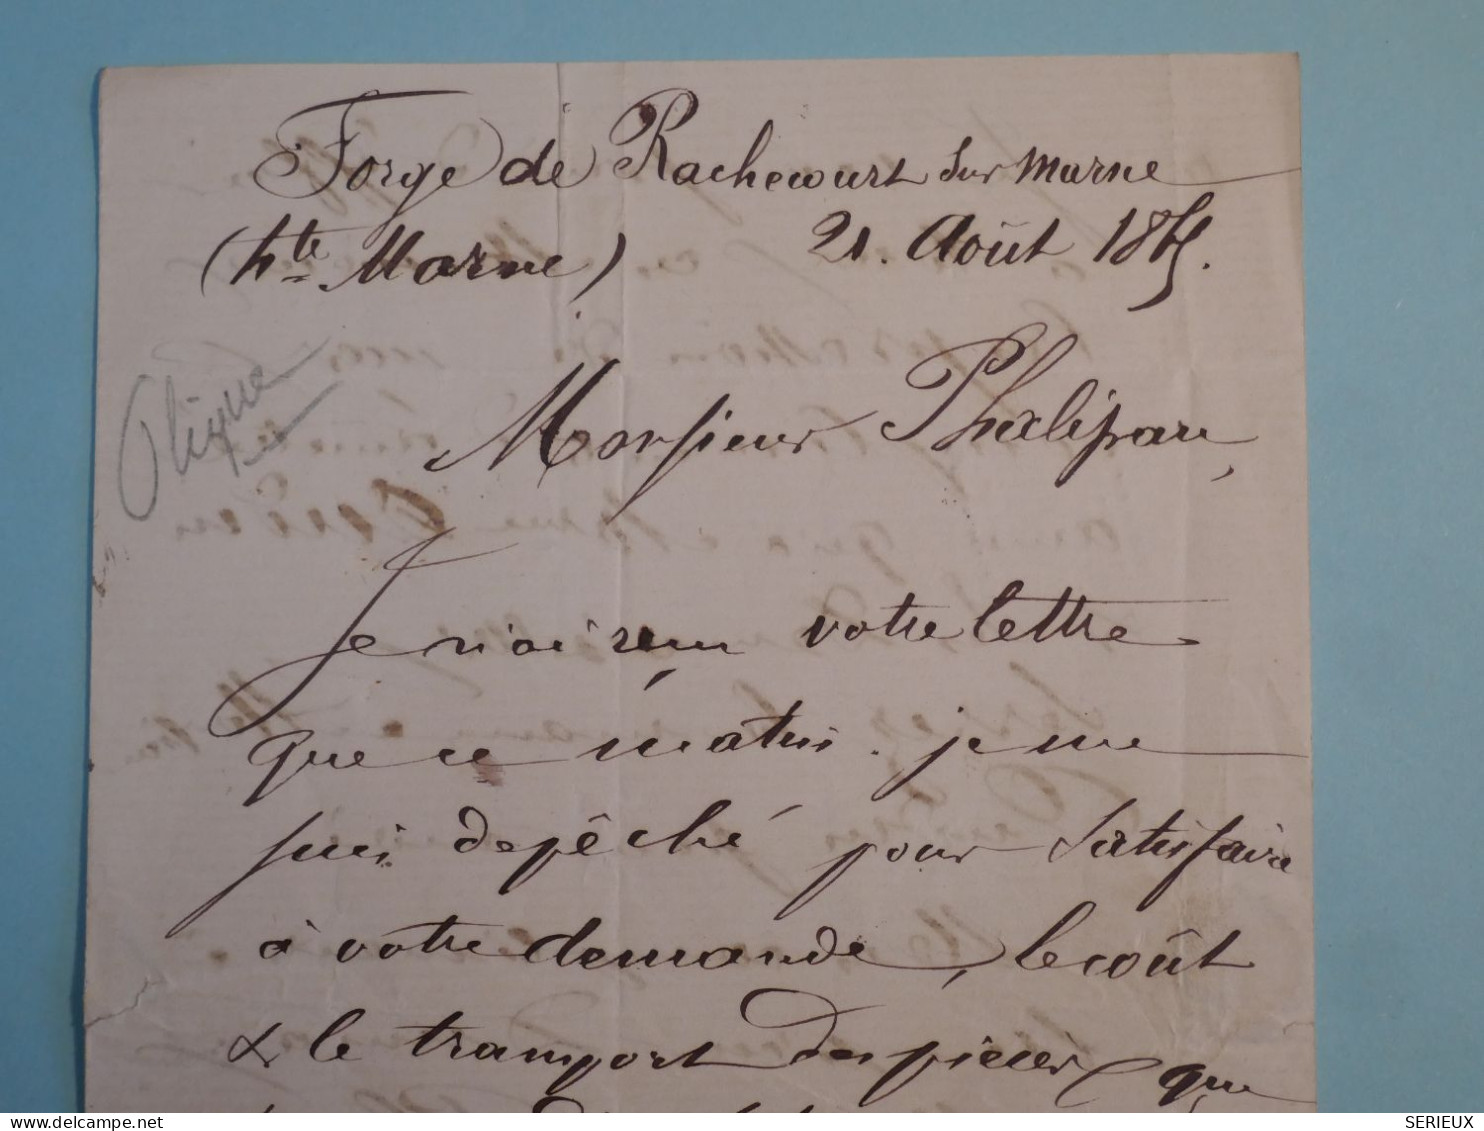 Forge de Rachecourt sur marne
(hte Marne) 21. Août 1865.
Monsieur Phalipau,
Je n'ai reçu votre lettre
que ce matin. je me
suis depêché pour satisfaire
à votre demande, le coût
& le transport des pièces que
SERIEUX